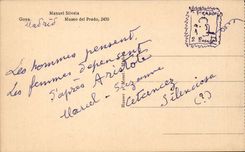 Manuel Silvela
Goya. Museo del Prado, 2450
Madrid
Les hommes pensent,
Les femmes dépensent
d'après Aristote
Marcel - Suzanne
Silenciosa
(?)